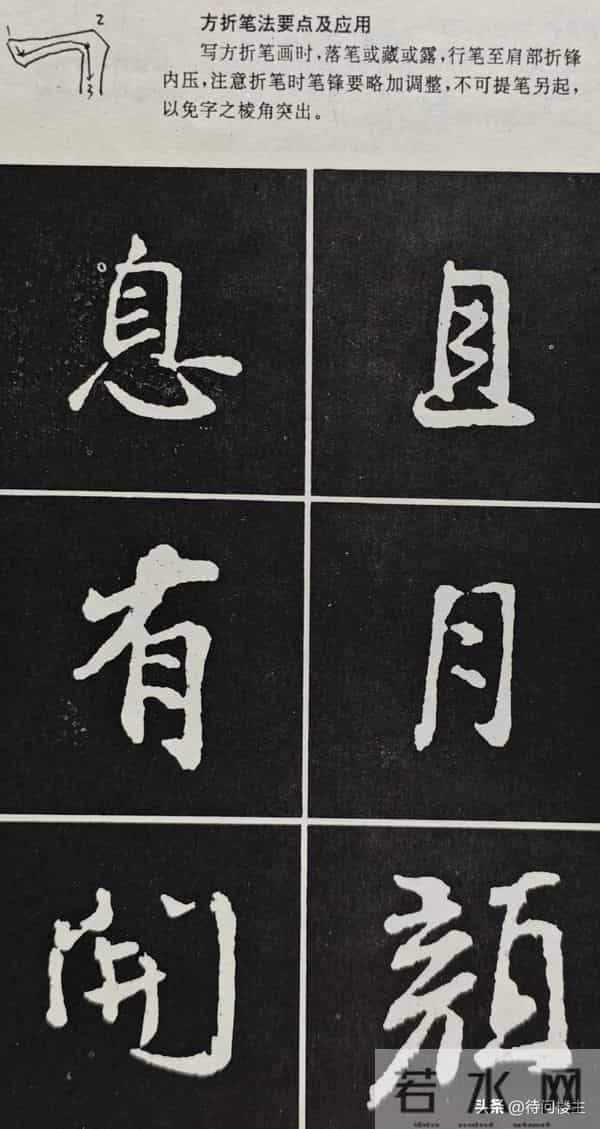 方折笔法要点及应用
写方折笔画时，落笔或藏或露，行笔至肩部折锋
内压，注意折笔时笔锋要略加调整，不可提笔另起，
以免字之棱角突出。
2
3
息 且
有 月
開 顔
若水网
头条 @待问楼主